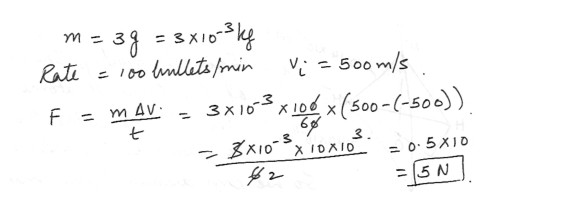 m = 3g = 3×10⁻³ kg
Rate = 100 bullets/min Vᵢ = 500 m/s.
F = m ΔV. / t = 3×10⁻³ × 100/60 × (500-(-500))
= 3×10⁻³ × 10×10³. / 6 2 = 0.5×10
= 5 N.